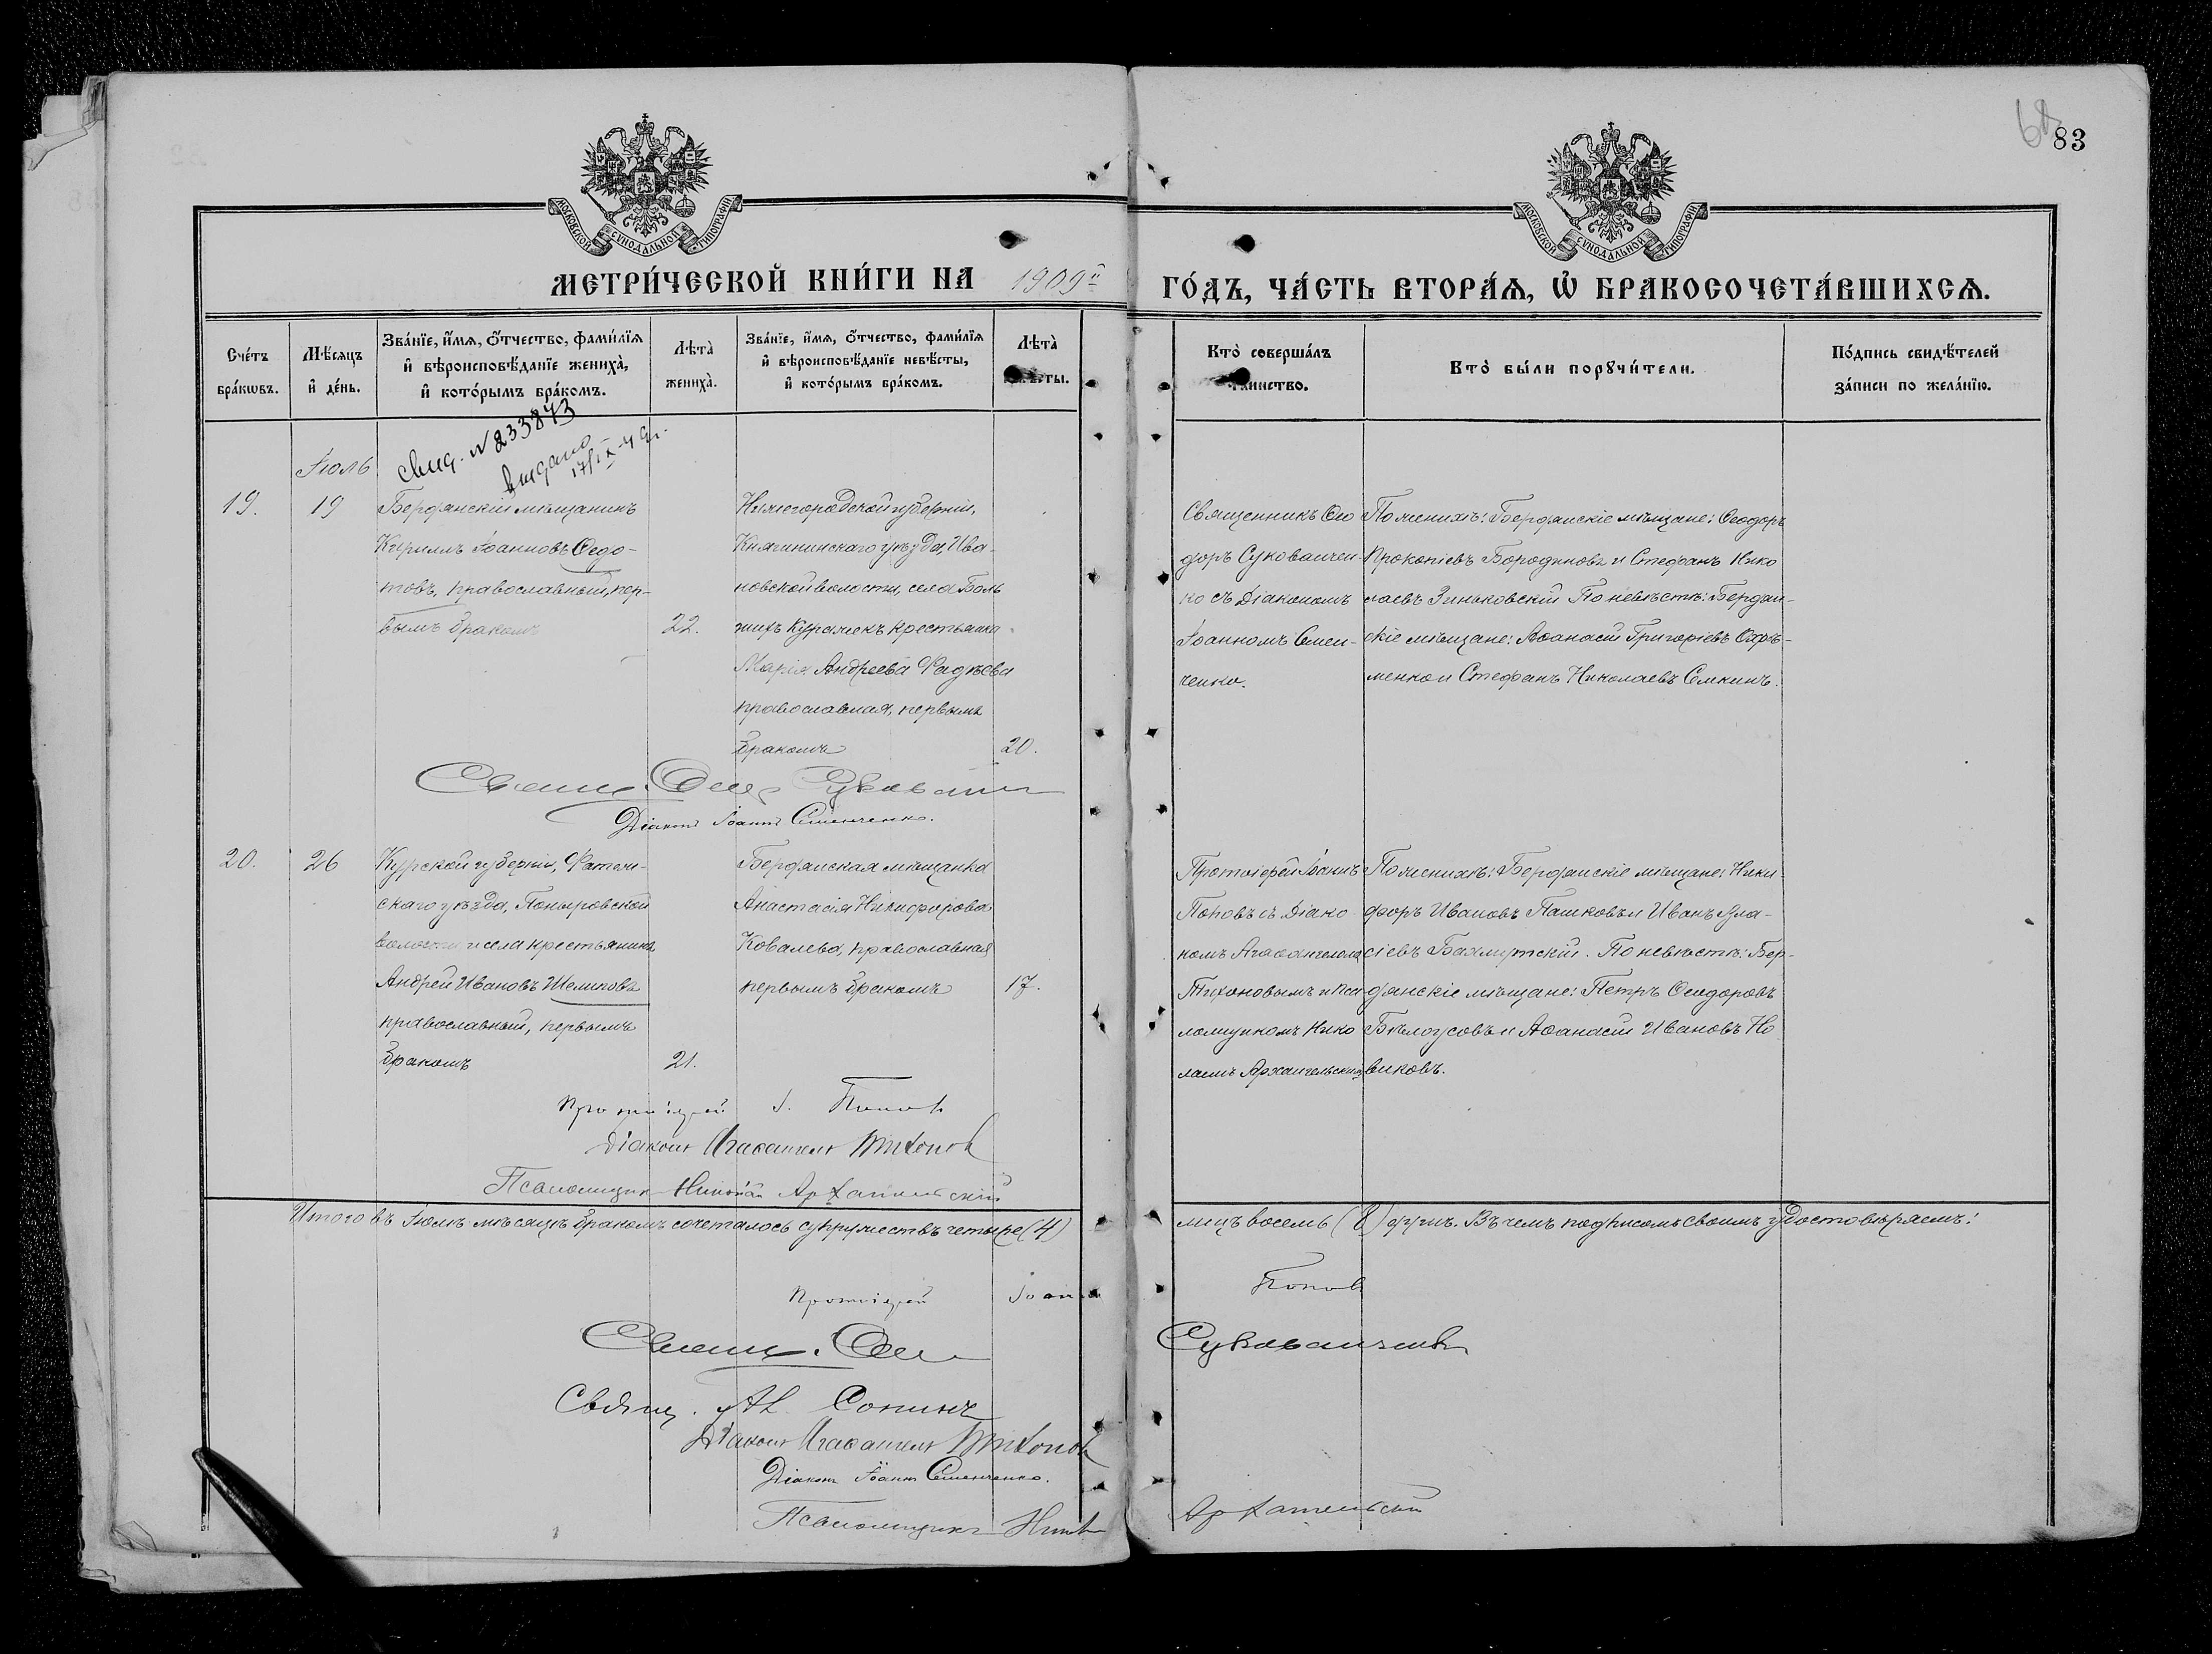 83
МОСКОВСКОЙ СѴНОДАЛЬНОЙ ТИПОГРАФІИ
МОСКОВСКОЙ СѴНОДАЛЬНОЙ ТИПОГРАФІИ
МЕТРИ́ЧЕСКОЙ КНИ́ГИ НА 1909й ГО́ДЪ, ЧА́СТЬ ВТОРА́Ѧ, Ѡ҆ БРАКОСОЧЕТА́ВШИХСѦ.
Сче́тъ
бра́кѡвъ.
Мѣ́сѧцъ
и҆ де́нь.
Зва́нїе, и҆́мѧ, ѻ҆́тчество, фами́лїѧ
и҆ вѣроисповѣ́данїе жениха̀,
и҆ кото́рымъ бра́комъ.
Лѣта̀
жениха̀.
Зва́нїе, и҆́мѧ, ѻ҆́тчество, фами́лїѧ
и҆ вѣроисповѣ́данїе невѣ́сты,
и҆ кото́рымъ бра́комъ.
Лѣта̀
невѣ́сты.
Кто̀ соверша́лъ
таинство.
Кто̀ бы́ли порꙋчи́тели.
По́дпись свидѣ́телей
за́писи по жела́нїю.
Свид. N 233873
выдано
17/IX-49г.
Іюль
19.
19
Бердянскій мѣщанинъ
Кириллъ Іоанновъ Ѳедо-
товъ, православный, пер-
вымъ бракомъ
22.
Нижегородской губерніи,
Княгининскаго уѣзда, Ива-
новской волости, села Боль
шихъ крестьянка
Марія Андреева Фадѣева
православная, первымъ
бракомъ
20.
Священникъ Ѳео
доръ Сукованчен-
ко съ Діакономъ
Іоанномъ Семен-
ченко.
По женихѣ: Бердянскіе мѣщане: Ѳеодоръ
Прокопіевъ Бородиновъ и Стефанъ Нико
лаевъ Зиньковскій По невѣстѣ: Бердян-
скіе мѣщане: Аѳанасій Григоріевъ Охрѣ-
менко и Стефанъ Николаевъ Семкинъ.
Свящ. Ѳеод Сукованч
Діаконъ Іоаннъ Семенченко.
20.
26
Курской губерніи, Фатеж-
скаго уѣзда, Поныровской
волости и села крестьянинъ
Андрей Ивановъ Шелиповъ
православный, первымъ
бракомъ
21.
Бердянская мѣщанка
Анастасія Никифорова
Ковалева, православная
первымъ бракомъ
17.
Протоіерей Іоаннъ
Поповъ съ Діако
номъ Агаѳангеломъ
Тихоновымъ и Пса
ломщикомъ Нико
лаемъ Архангельскимъ
По женихѣ: Бердянскіе мѣщане: Ники-
форъ Ивановъ Пашковъ и Иванъ Вла-
сіевъ Бахмутскій. По невѣстѣ: Бер-
дянскіе мѣщане: Петръ Ѳеодоровъ
Бѣлоусовъ и Аѳанасій Ивановъ Но
виковъ.
Протоіерей І. Попов
Діаконъ Агаѳангелъ Тихонов
Псаломщикъ Николай Архангельскій
Итого въ Іюлѣ мѣсяцѣ бракомъ сочеталось супружествъ четыре (4) лицъ восемь (8) душъ. Въ чемъ подписомъ своимъ удостовѣряемъ:
Протоіерей Іоаннъ Попов
Свящ. Ѳео Сукованченко
Свящ. Ал. Сонинъ
Діаконъ Агаѳангелъ Тихонов
Діаконъ Іоаннъ Семенченко.
Псаломщикъ Ник Архангельскій